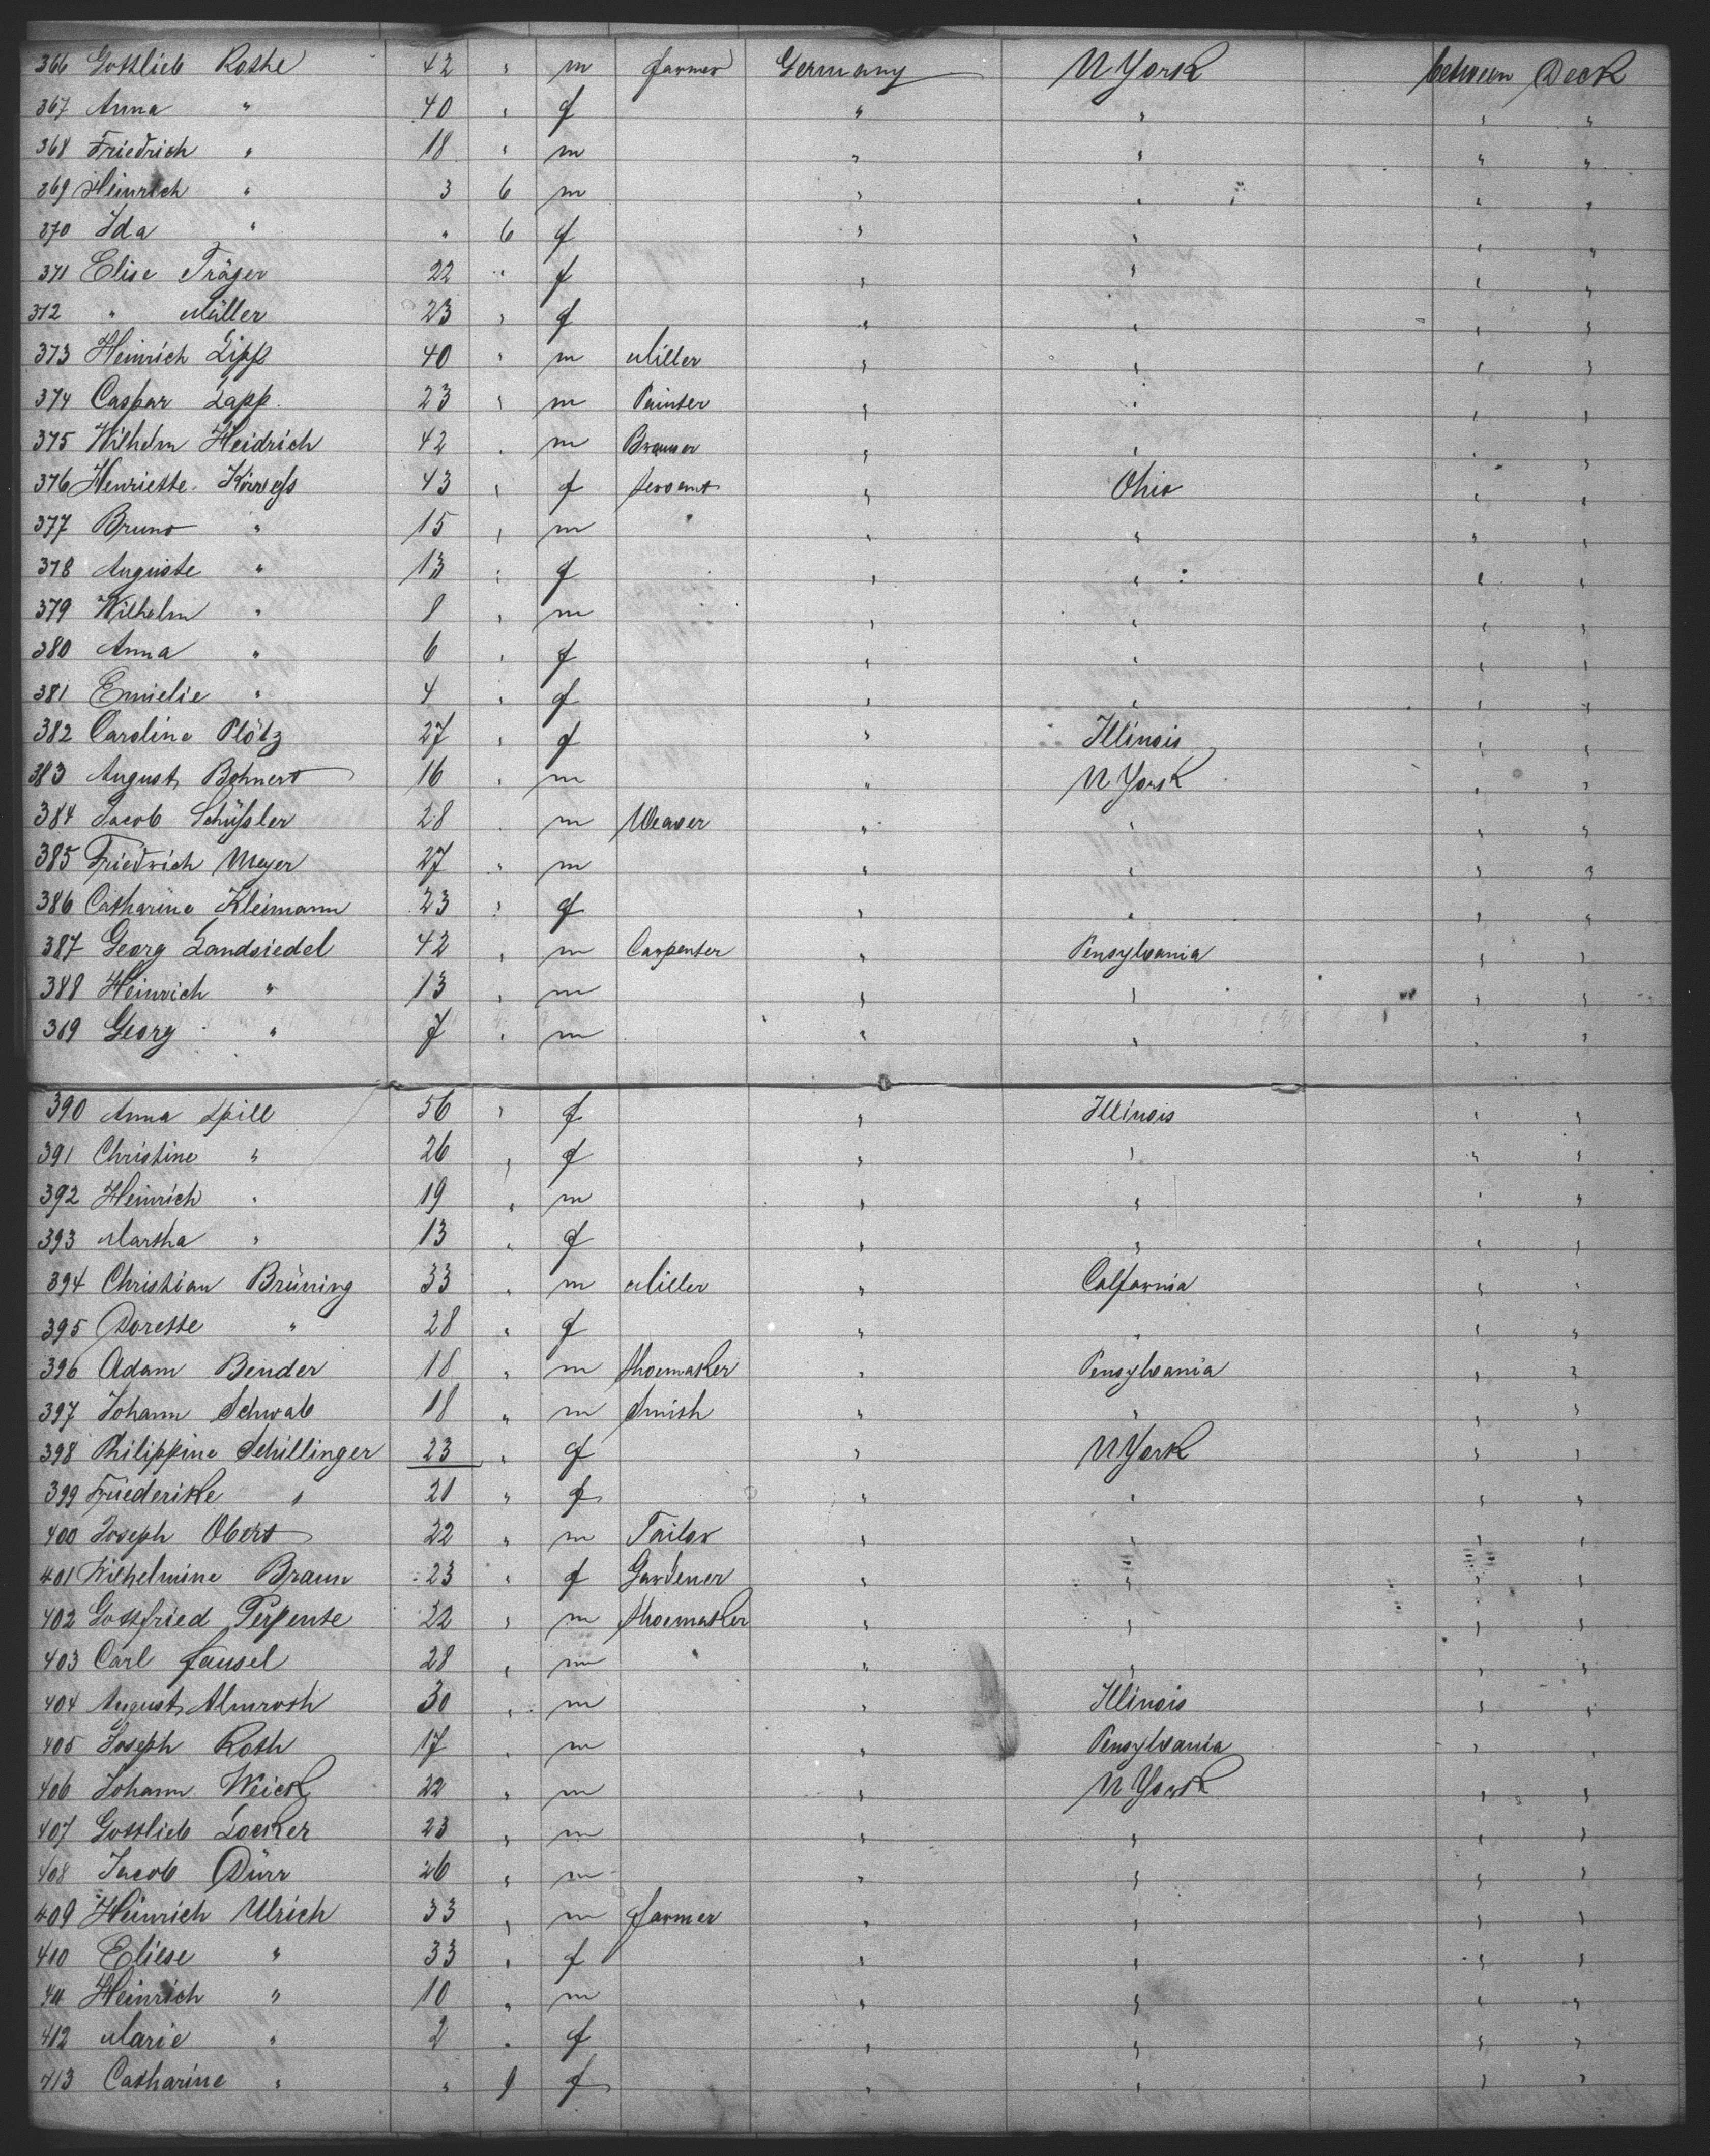 366 Gottlieb Rothe 42 " m farmer Germany N York between Deck
367 Anna " 40 " f " " " "
368 Friedrich " 18 " m " " " "
369 Heinrich " 3 6 m " " " "
370 Ida " " 6 f " " " "
371 Elise Träger 22 " f " " " "
372 " Müller 23 " f " " " "
373 Heinrich Lipp 40 " m Miller " " " "
374 Caspar Lapp 23 " m Painter " " " "
375 Wilhelm Heidrich 42 " m " " " "
376 Henriette 43 " f servant " Ohio " "
377 Bruno " 15 " m " " " " "
378 Auguste " 13 " f " " " "
379 Wilhelm " 8 " m " " " "
380 Anna " 6 " f " " " "
381 Emielie " 4 " f " " " "
382 Caroline Plötz 27 " f " Illinois " "
383 August Bohnert 16 " m " N York " "
384 Jacob Schüssler 28 " m Weaver " " " "
385 Friedrich Meyer 27 " m " " " "
386 Catharine Kleimann 23 " f " " " "
387 Georg Landsiedel 42 " m Carpenter " Pensylvania " "
388 Heinrich " 13 " m " " " "
389 Georg " 7 " m " " " "
390 Anna Spill 56 " f " Illinois " "
391 Christine " 26 " f " " " "
392 Heinrich " 19 " m " " " "
393 Martha " 13 " f " " " "
394 Christian Brüning 33 " m Miller " Calfornia " "
395 Dorette " 28 " f " " " "
396 Adam Bender 18 " m shoemaker " Pensylvania " "
397 Johann Schwab 18 " m smith " " " "
398 Philippine Schillinger 23 " f " N York " "
399 Friederike " 21 " f " " " "
400 Joseph Obert 22 " m Tailor " " " "
401 Wilhelmine Braun 23 " f Gardener " " " "
402 Gottfried Perpente 22 " m shoemaker " " " "
403 Carl Fausel 28 " m " " " " "
404 August Almroth 30 " m " Illinois " "
405 Joseph Roth 17 " m " Pensylvania " "
406 Johann Weick 22 " m " N York " "
407 Gottlieb Locker 23 " m " " " "
408 Jacob Dürr 26 " m " " " "
409 Heinrich Ulrich 33 " m farmer " " " "
410 Eliese " 33 " f " " " "
411 Heinrich " 10 " m " " " "
412 Marie " 2 " f " " " "
413 Catharine " " 9 f " " " "